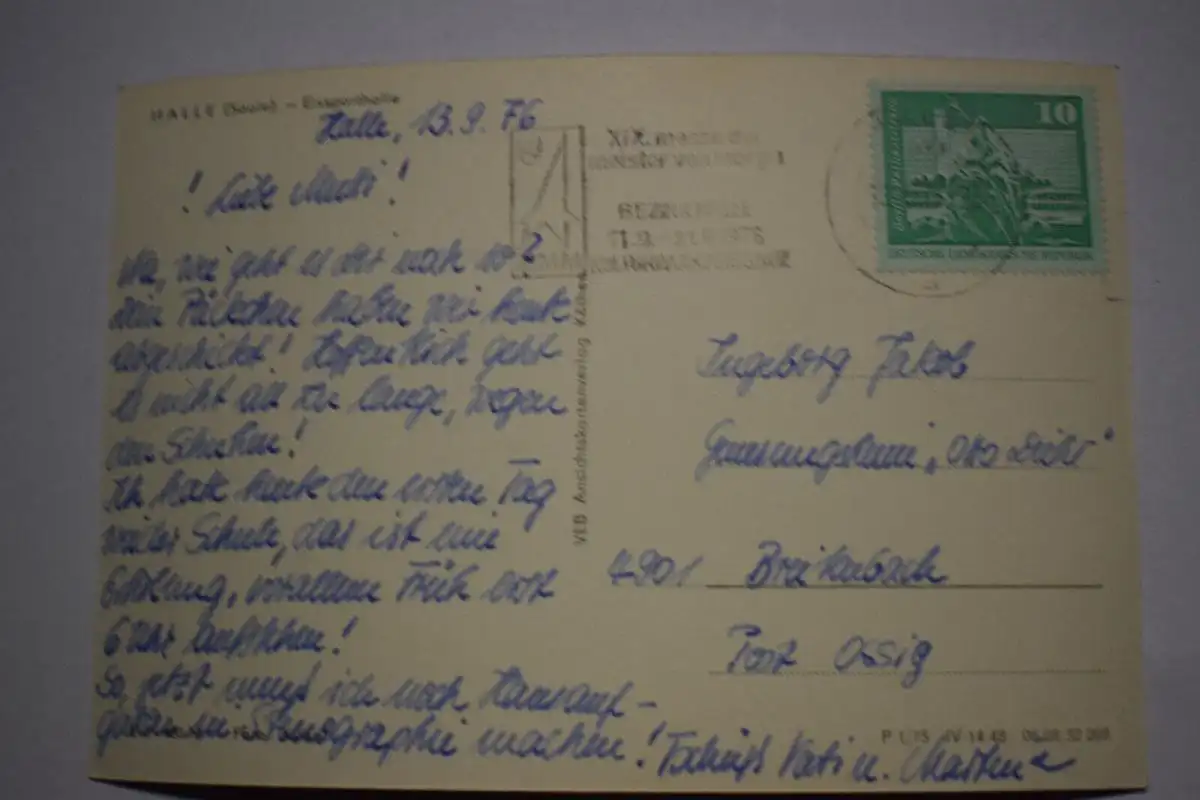 HALLE (Saale) – Eissporthalle
Halle, 13.9.76
! Liebe Mutti !
Na, wie geht es dir noch so?
Dein Päckchen haben wir heute
abgeschickt! Hoffentlich geht
es nicht all zu lange, wegen
den Schuhen!
Ich hatte heute den ersten Tag
wieder Schule, das ist eine
Erholung, vorallem Früh erst
6 Uhr aufstehen!
So, jetzt muß ich noch Hausauf-
gaben in Stenographie machen! Tschüß Kati u. Martina
VEB Ansichtskartenverlag
XIX. messe der
meister von morgen
BEZIRK HALLE
1976
10
DEUTSCHE DEMOKRATISCHE REPUBLIK
Ingeborg Jakob
Genesungsheim „Otto
4901 Breitenbach
Post Ossig
P 1/75 IV-14-48